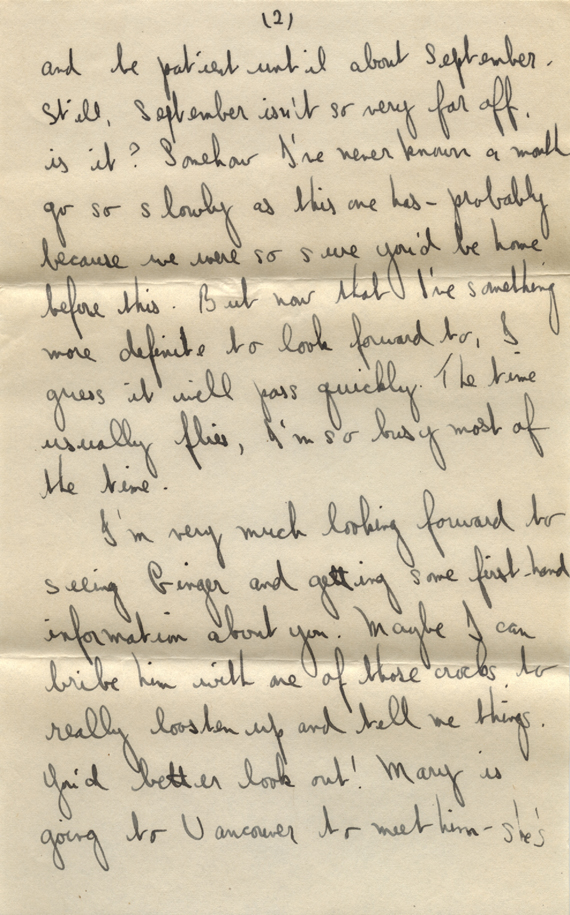 (2)
and be patient until about September.
Still, September isn't so very far off,
is it? Somehow I've never known a month
go so slowly as this one has - probably
because we were so sure you'd be home
before this. But now that I've something
more definite to look forward to, I
guess it will pass quickly. The time
usually flies, I'm so busy most of
the time.
I'm very much looking forward to
seeing Ginger and getting some first-hand
information about you. Maybe I can
bribe him with one of those crocks to
really loosten up and tell me things.
You'd better look out! Mary is
going to Vancouver to meet him - she's